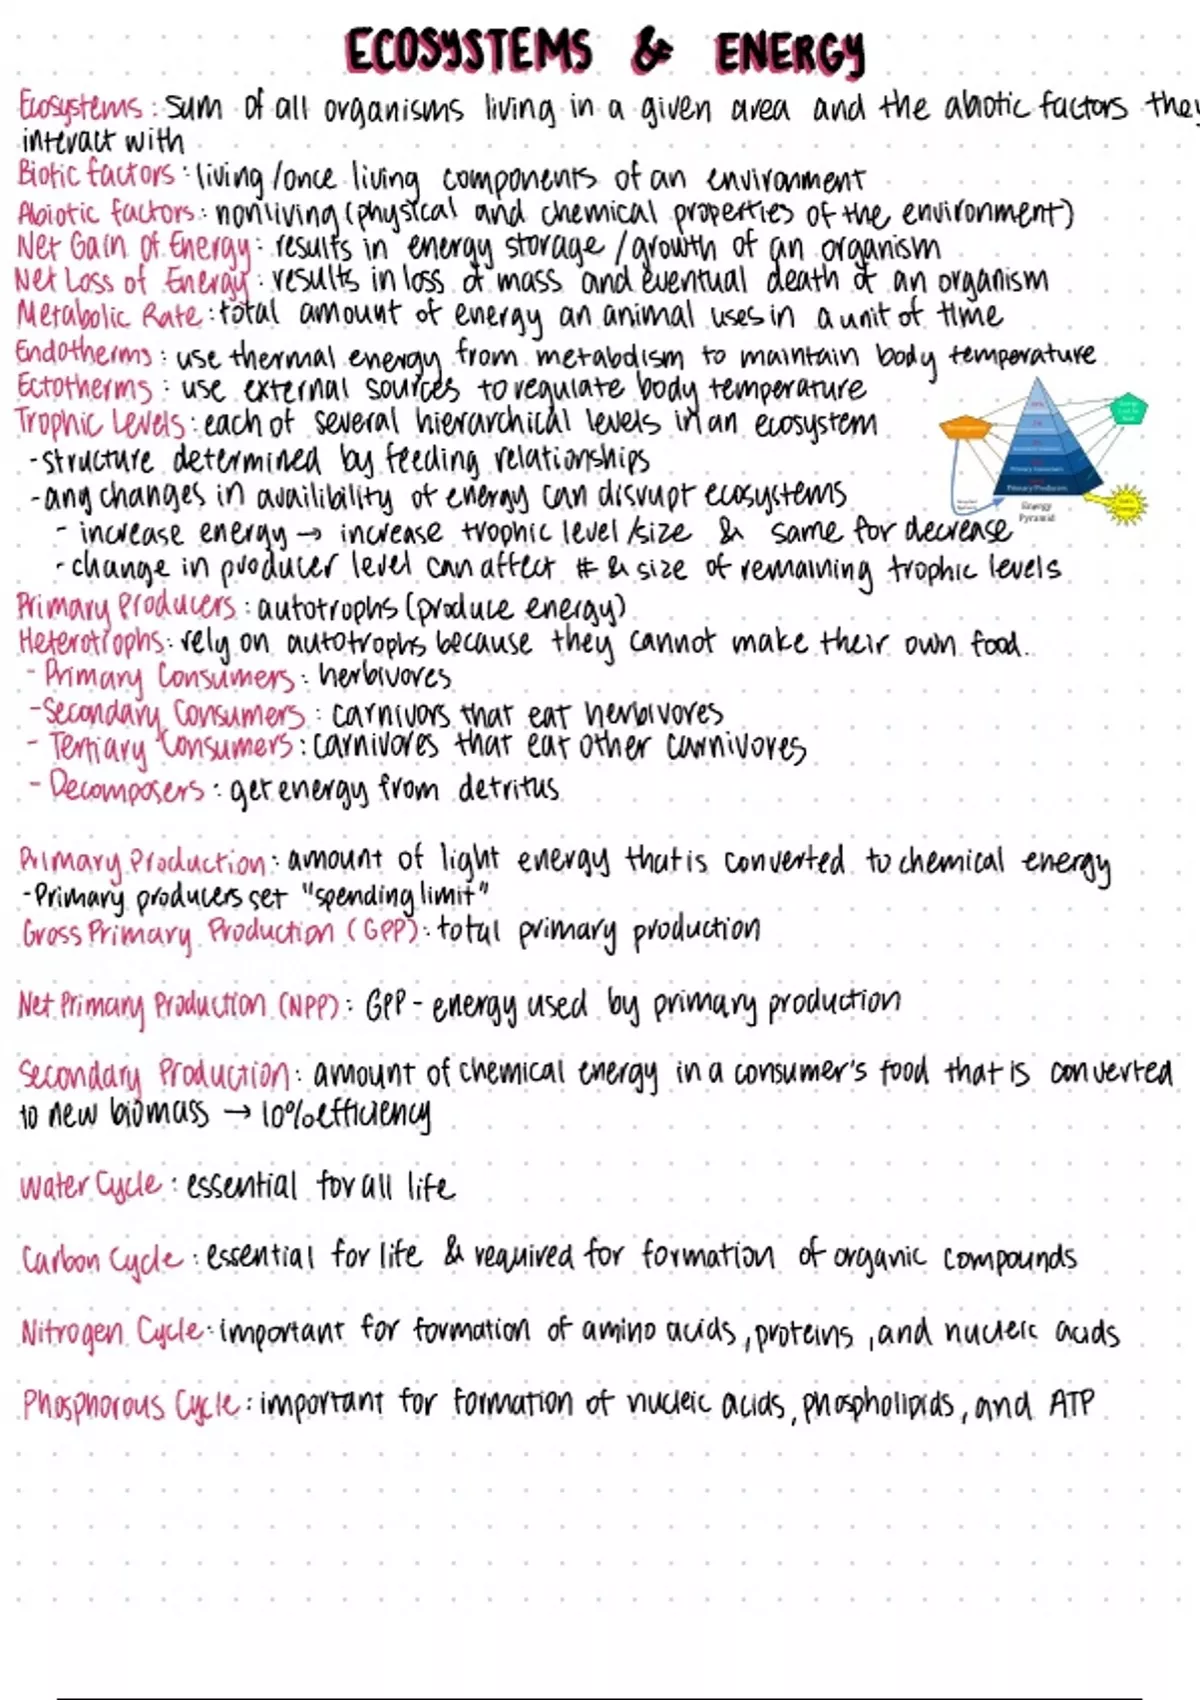 ECOSYSTEMS & ENERGY
Ecosystems: sum of all organisms living in a given area and the abiotic factors they
interact with
Biotic factors: living/once living components of an environment
Abiotic factors: nonliving (physical and chemical properties of the environment)
Net Gain of Energy: results in energy storage/growth of an organism
Net Loss of Energy: results in loss of mass and eventual death of an organism
Metabolic Rate: total amount of energy an animal uses in a unit of time
Endotherms: use thermal energy from metabolism to maintain body temperature
Ectotherms: use external sources to regulate body temperature
Trophic Levels: each of several hierarchical levels in an ecosystem
-structure determined by feeding relationships
-any changes in availibility of energy can disrupt ecosystems
- increase energy → increase trophic level/size & same for decrease
-change in producer level can affect # & size of remaining trophic levels
Primary Consumers
Primary Producers
Energy
Pyramid
Primary Producers: autotrophs (produce energy)
Heterotrophs: rely on autotrophs because they cannot make their own food.
- Primary Consumers: herbivores
-Secondary Consumers: carnivors that eat herbivores
- Tertiary Consumers: carnivores that eat other carnivores
- Decomposers: get energy from detritus
Primary Production: amount of light energy that is converted to chemical energy
-Primary producers set "spending limit"
Gross Primary Production (GPP): total primary production
Net Primary Production (NPP): GPP - energy used by primary production
Secondary Production: amount of chemical energy in a consumer's food that is converted
to new biomass → 10% efficiency
Water Cycle: essential for all life
Carbon Cycle: essential for life & required for formation of organic compounds
Nitrogen Cycle: important for formation of amino acids, proteins, and nucleic acids
Phosphorous Cycle: important for formation of nucleic acids, phospholipids, and ATP